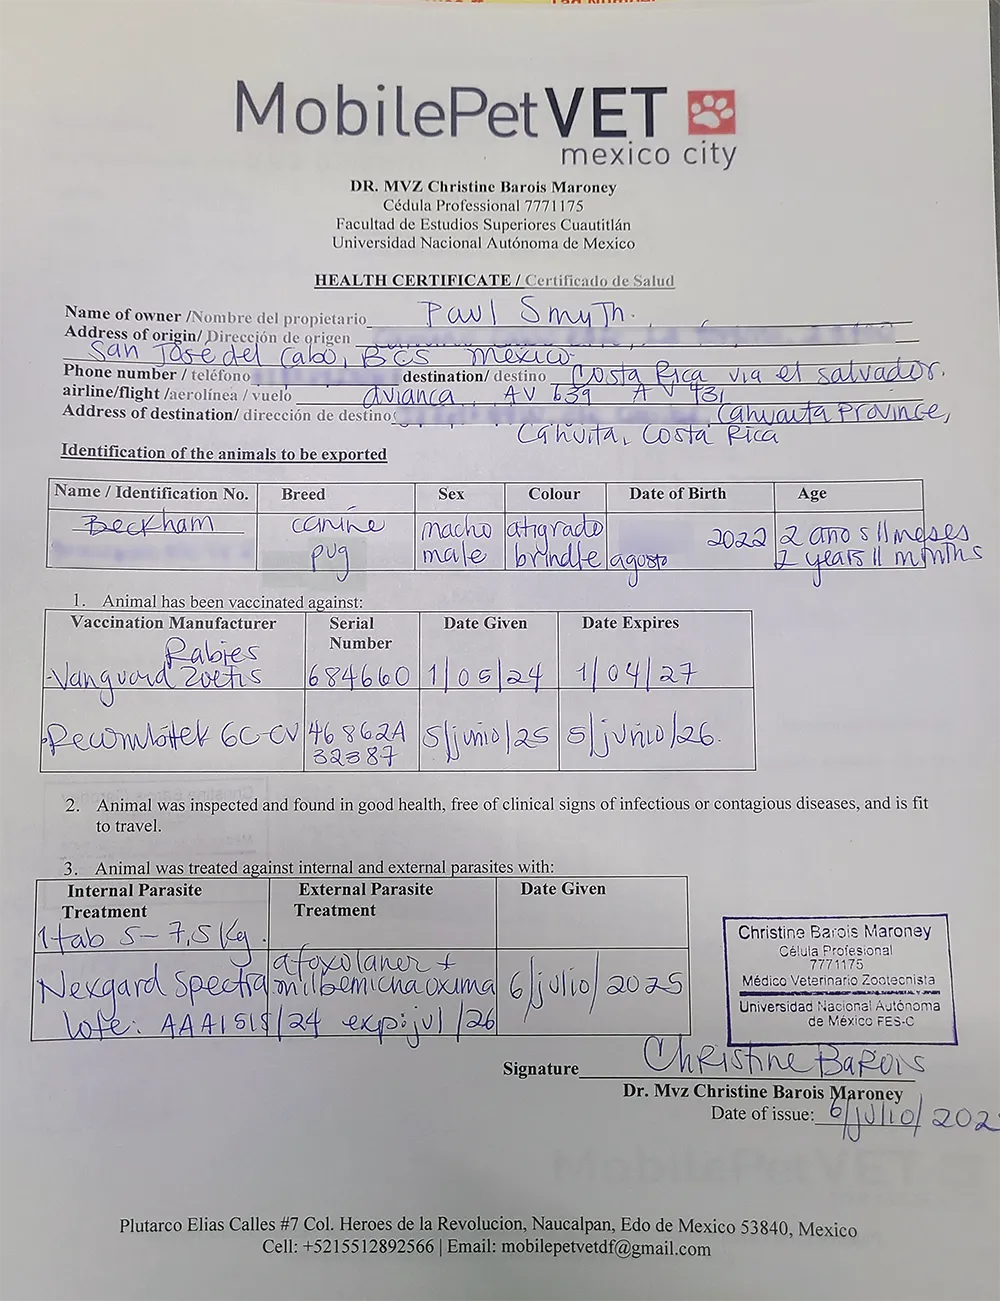 MobilePetVET
mexico city
DR. MVZ Christine Barois Maroney
Cédula Professional 7771175
Facultad de Estudios Superiores Cuautitlán
Universidad Nacional Autónoma de Mexico
HEALTH CERTIFICATE / Certificado de Salud
Name of owner /Nombre del propietario Paul Smyth.
Address of origin/ Dirección de origen
San José del Cabo, BCS mexico
Phone number / teléfono destination/ destino Costa Rica via el salvador.
airline/flight /aerolínea / vuelo avianca AV 639 AV 431
Address of destination/ dirección de destino Cahuaita Province,
Cahuita, Costa Rica
Identification of the animals to be exported
Name / Identification No. Breed Sex Colour Date of Birth Age
Beckham canine macho atigrado 2022 2 años 11 meses
pug male brindle agosto 2 years 11 months
1. Animal has been vaccinated against:
Vaccination Manufacturer Serial Number Date Given Date Expires
Rabies
Vanguard Zoetis 684660 1/05/24 1/04/27
Recombitek 6C-CV 46862A 5/junio/25 5/junio/26.
32387
2. Animal was inspected and found in good health, free of clinical signs of infectious or contagious diseases, and is fit
to travel.
3. Animal was treated against internal and external parasites with:
Internal Parasite External Parasite Date Given
Treatment Treatment
1 tab 5-7,5 Kg.
afoxolaner +
Nexgard Spectra 6/julio/2025
lote: exp: jul /26
Christine Barois Maroney
Célula Profesional
7771175
Médico Veterinario Zootecnista
Universidad Nacional Autónoma
de México FES-C
Signature Christine Barois
Dr. Mvz Christine Barois Maroney
Date of issue: 6/julio/202
Plutarco Elias Calles #7 Col. Heroes de la Revolucion, Naucalpan, Edo de Mexico 53840, Mexico
Cell: +5215512892566 | Email: mobilepetvetdf@gmail.com